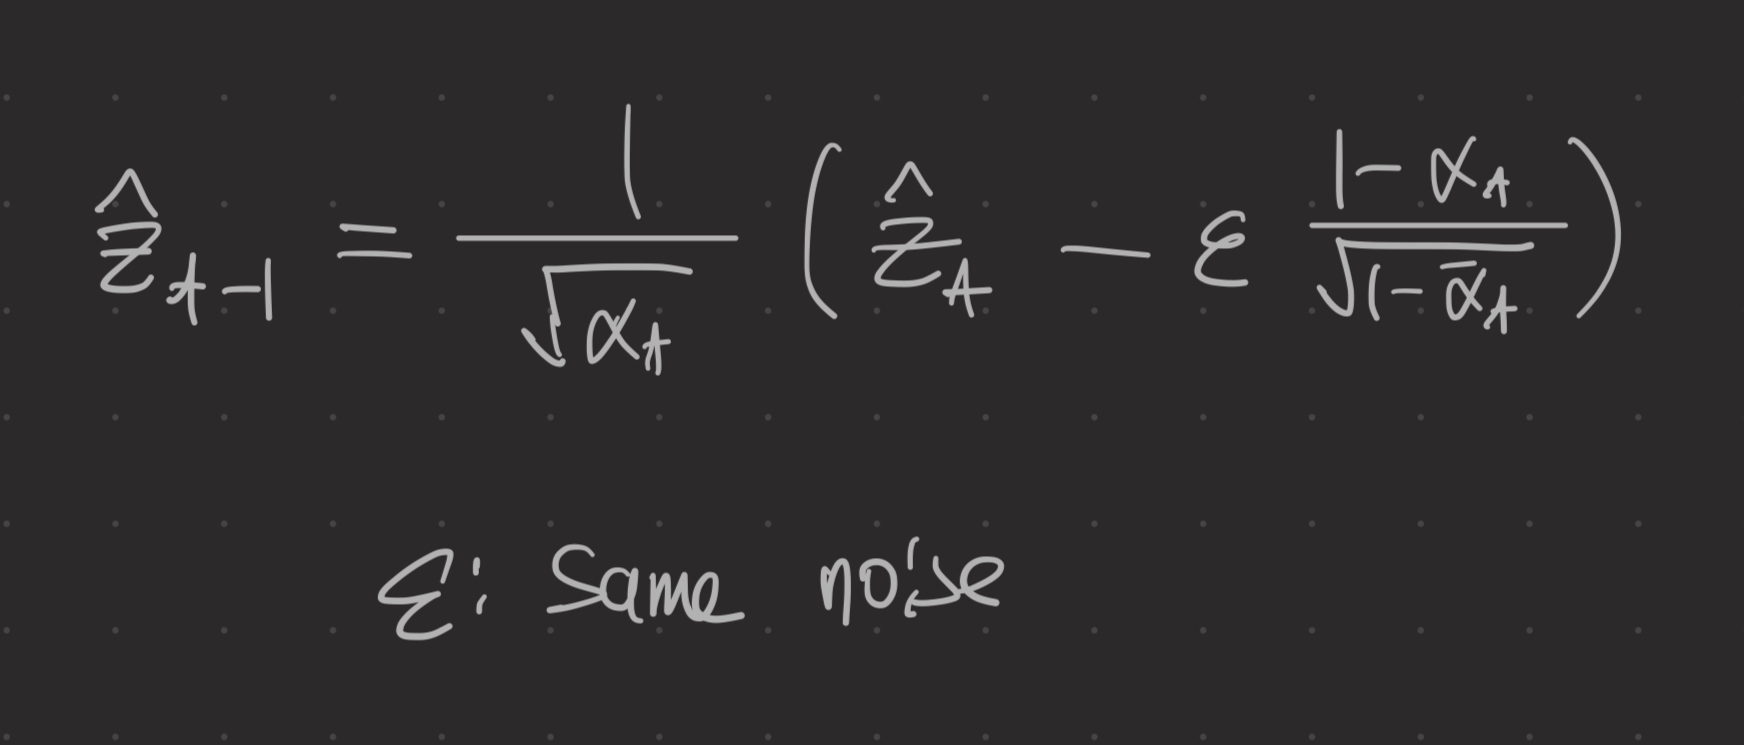 ẑ_{t-1} = \frac{1}{\sqrt{α_t}} ( ẑ_t - ε \frac{1-α_t}{\sqrt{1-\bar{α}_t}} )
ε: Same noise